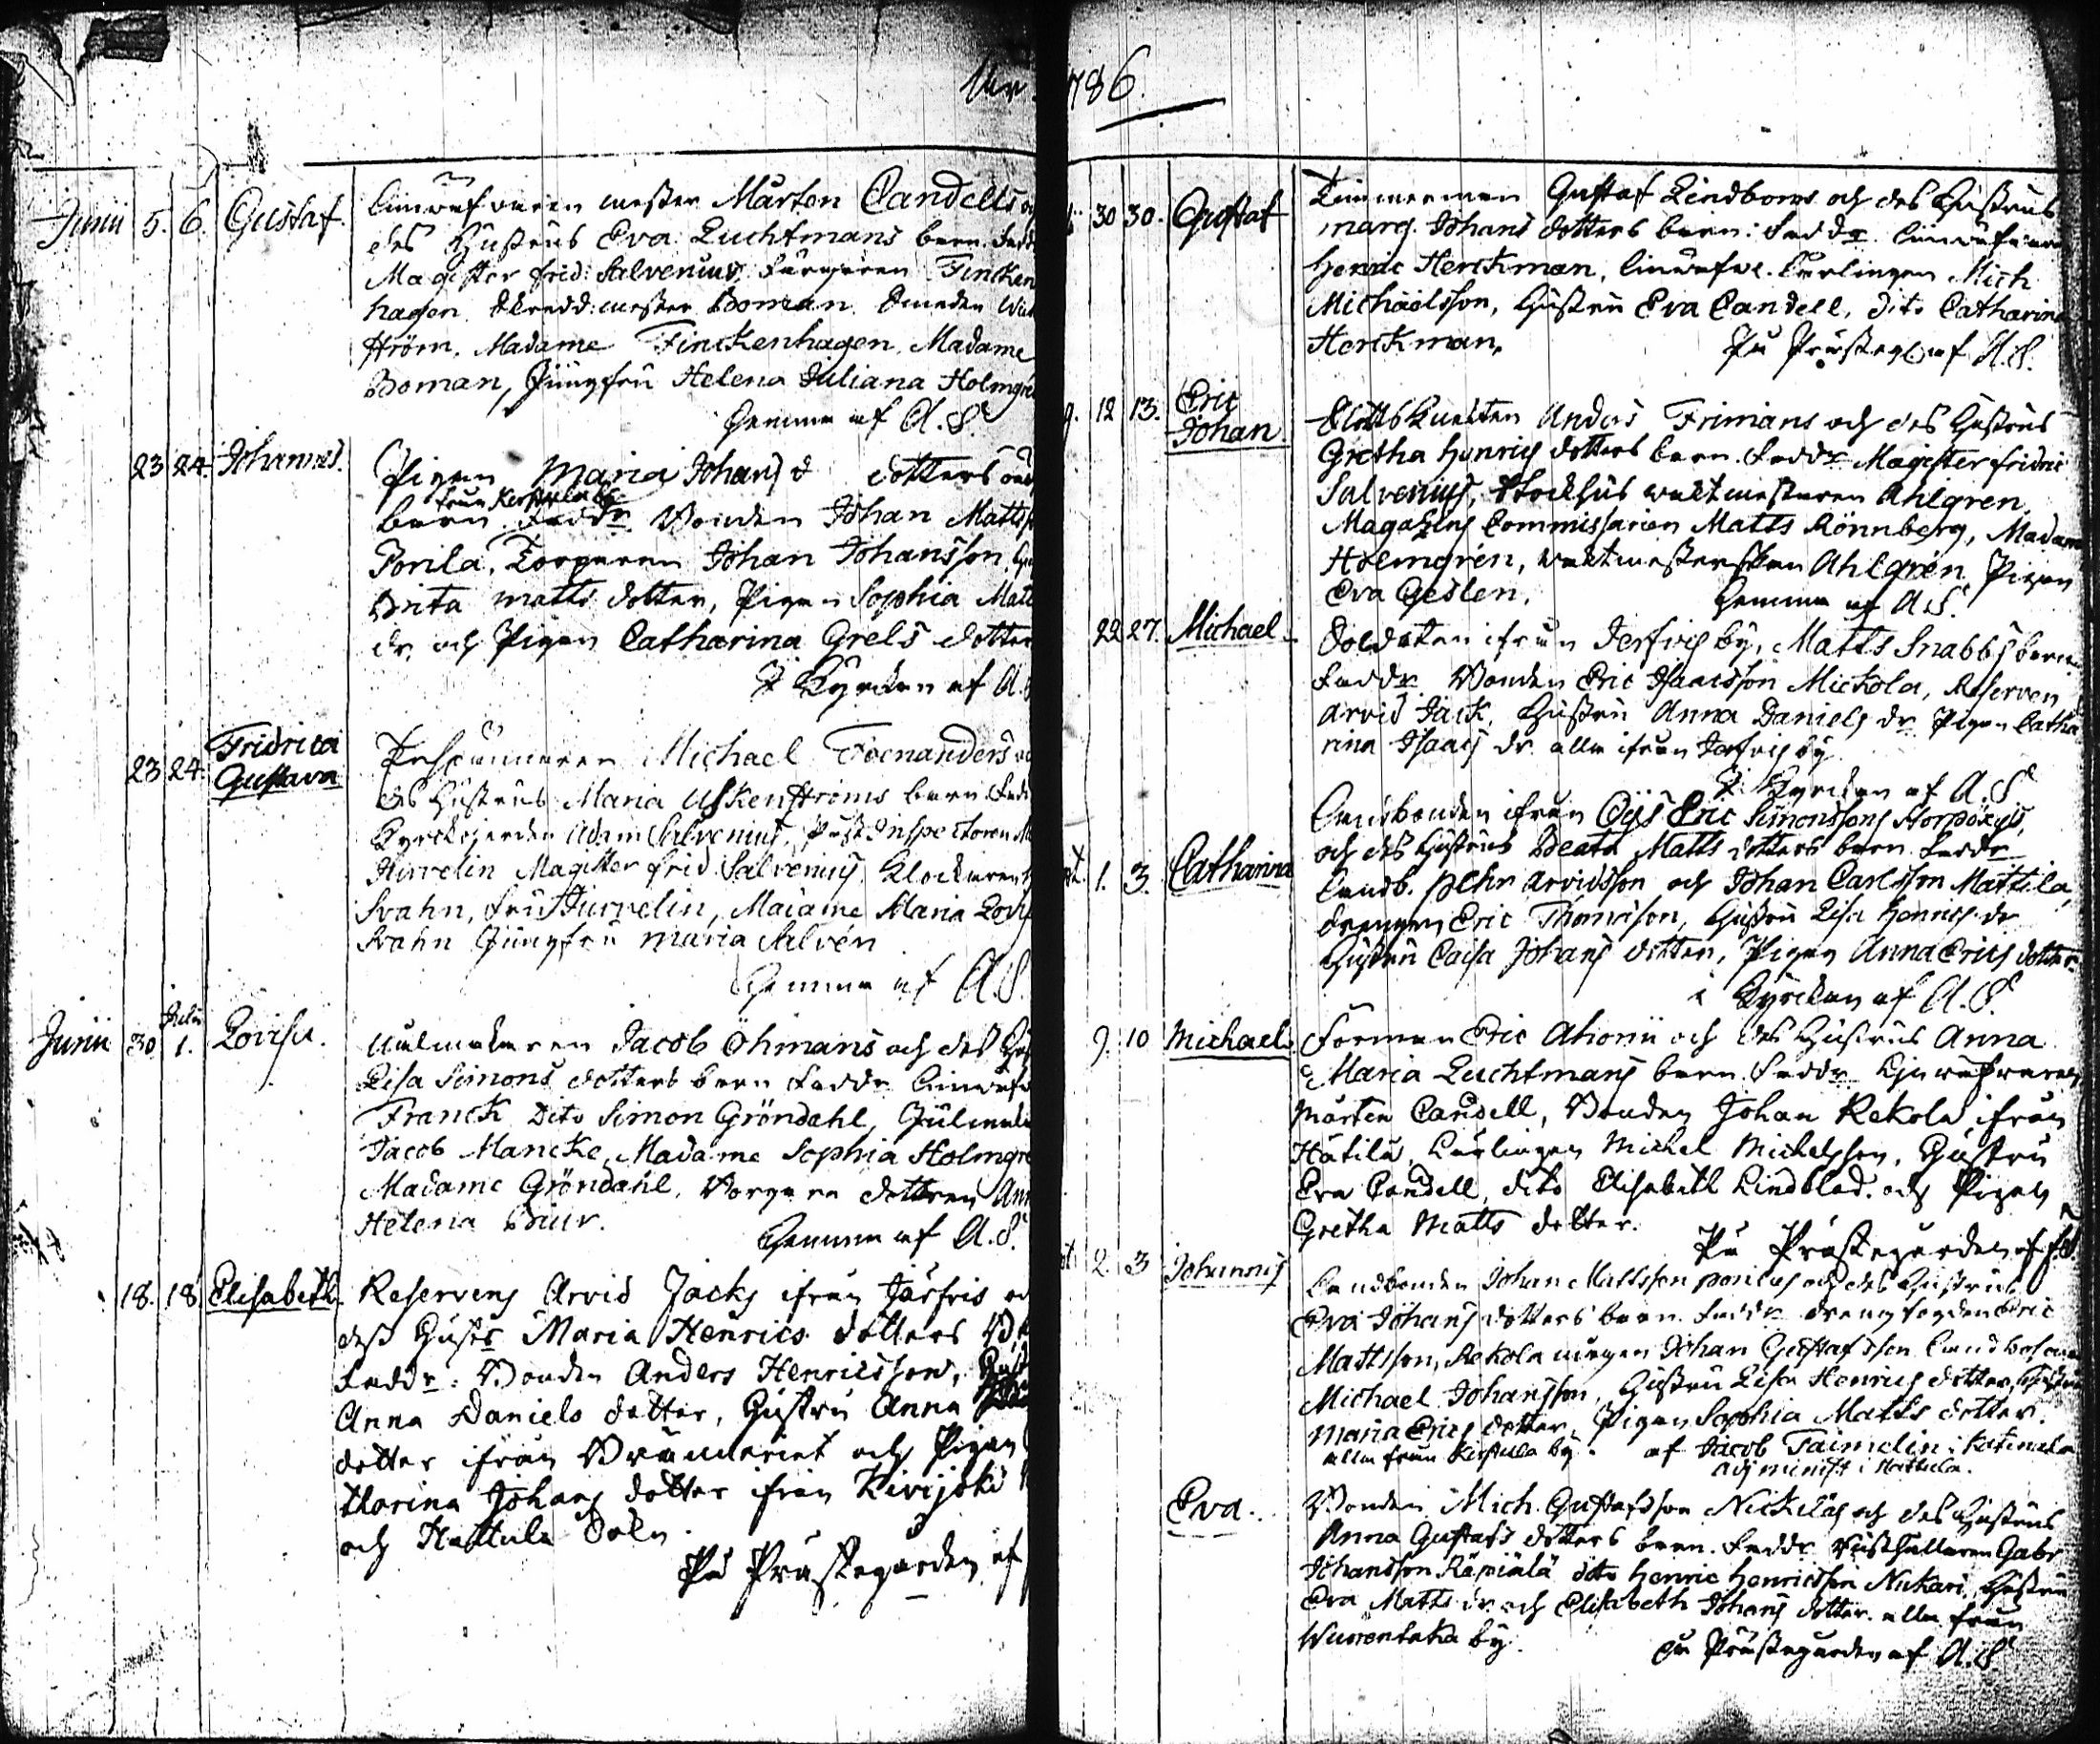 1786.
Junii 5. 6. Gustaf. Linwefvaren mester Mårten Candells
des Hustrus Eva Luchtmans barn. Fadd
Magister Frid: Salvenius Färgaren Fincken
hagen. Skredd: mester Boman. Smeden Wik
ström. Madame Finckenhagen, Madame
Boman, Jungfru Helena Juliana Holmgre
Hemma af A. S.
23 24. Johannes. Pigan Maria Johans dotters
från Kerstula by
barn. Faddr. Bonden Johan Matts
Porila, Torparen Johan Johansson
Brita Matts dotter, Pigan Sophia Matt
dr. och Pigan Catharina Grels dotter
I Kyrckan af A.
23 24. Fridrica
Gustava Michael Foenanders
des Hustrus Maria Askenströms barn. Fad
Kyrckoherden Adam Salvenius, Post Inspectoren
Hurvelin Magister Frid. Salvenius. Klockaren
Svahn, Fru Hurvelin, Madame Maria Lovis
Svahn Jungfru Maria Salvén
Hemma af A. S.
Junii 30 Julii 1. Lovisa. Jacob Öhmans och des Hus
Lisa Simons dotters barn Faddr. Linwefv
Franck Dito Simon Gröndahl,
Jacob Mancke, Madame Sophia Holmgre
Madame Gröndahl, Borgare dottren Ann
Helena
Hemma af A. S.
18. 18 Elisabeth. Reservens Arvid Jacks ifrån Järfvis
dess Hustr Maria Henrics dotters
Faddr: Bonden Anders Henricsson,
Anna Daniels dotter, Hustru Anna
dotter ifrån och Pigan
tharina Johans dotter ifrån Kivijoki
och Hattula Soln
På Prästegården af
30 30. Gustaf Timmerman Gustaf Lindboms och des Hustrus
Marg. Johans dotters barn: Faddr. Linwefvaren
Henric Herckman, Linwefve. Lärlingen Mich
Michaëlsson, Hustru Eva Candell, dito Catharina
Herckman,
På Prästeg. af A. S.
12 13. Eric
Johan. Slottsknekten Anders Frimans och des Hustrus
Gretha Henrics dotters barn. Faddr Magister Fridric
Salvenius, Stockhus waktmesteren Ahlgren,
Magazins Commissarien Matts Rönnberg, Madame
Holmgrén, waktmesterskan Ahlgrén, Pigan
Eva Geslen.
Hemma af A. S.
22 27. Michael Soldaten ifrån Jerfvis by, Matts Snabbs barn
Faddr Bonden Eric Isaacsson Mickola, Reserven
Arvid Jack, Hustru Anna Daniels dr Pigan Catha
rina Isaacs dr alla ifrån Jerfvis by
I Kyrckan af A. S.
Landbonden ifrån Öijs Eric Simonssons Storpöijts,
och des Hustrus Beata Matts dotters barn. Faddr
1. 3. Catharina Landb. Pehr Arvidsson och Johan Carlsson Mattila,
drengen Eric Thomsson, Hustru Lisa Henrics dr
Hustru Caisa Johans dotter, Pigan Anna Erics dotter
i Kyrckan af A. S.
9. 10 Michael. Forman Eric Ahonii och des Hustrus Anna
Maria Luchtmans barn. Faddr Linwefvaren
Mårten Candell, Bonden Johan Rekola ifrån
Hätilä, Lärlingen Michel Michelsson, Hustru
Eva Candell, dito Elisabeth Lindblad. och Pigan
Gretha Matts dotter.
På Prästegården af
2. 3 Johannis Landbonden Johan Mattsson Porilas och des Hustrus
Eva Johans dotters barn. Faddr. Eric
Mattsson, Rekola mågen Johan Gustafsson
Michael Johansson, Hustru Lisa Henrics dotter,
Maria Erics dotter, Pigan Sophia Matts dotter.
alla från Kerstula by. af Jacob Taimelin i Katinala
adjminist i Hattula.
Eva. Bonden Mich. Gustafsson Nickiläs och des Hustrus
Anna Gustafs dotters barn. Faddr Rusthållaren Gabr
Johansson Räpiälä dito Henric Henricsson Nickari, Hustru
Eva Matts dr och Elisabeth Johans dotter alla från
Wuorentaka by.
På Prästegården af A. S.